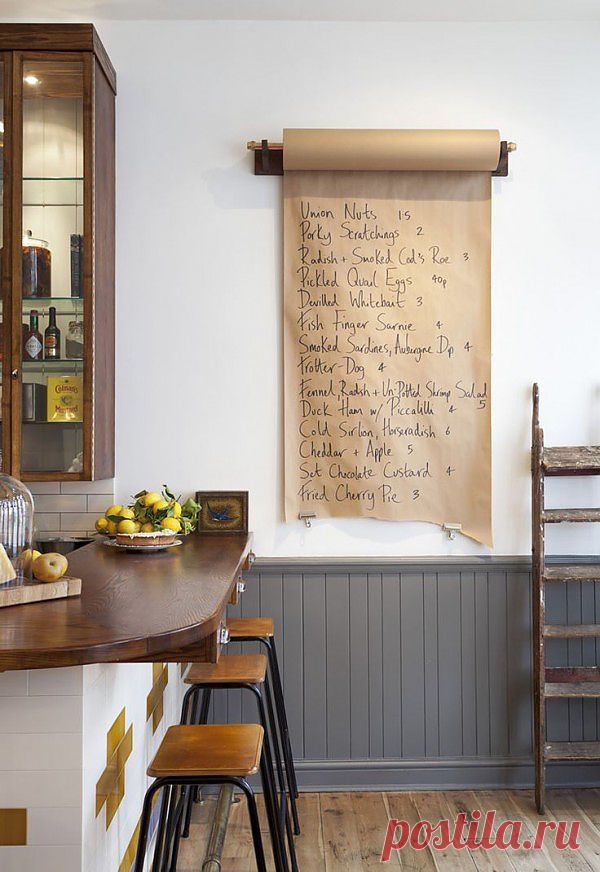 Union Nuts 1.5
Porky Scratchings 2
Radish + Smoked Cod's Roe 3
Pickled Quail Eggs 40p
Devilled Whitebait 3
Fish Finger Sarnie 4
Smoked Sardines, Aubergine Dip 4
Trotter-Dog 4
Fennel, Radish + Un-Potted Shrimp Salad 5
Duck Ham w/ Piccalilli 4
Cold Sirloin, Horseradish 6
Cheddar + Apple 5
Set Chocolate Custard 4
Fried Cherry Pie 3
Colman's
Mustard
postila.ru